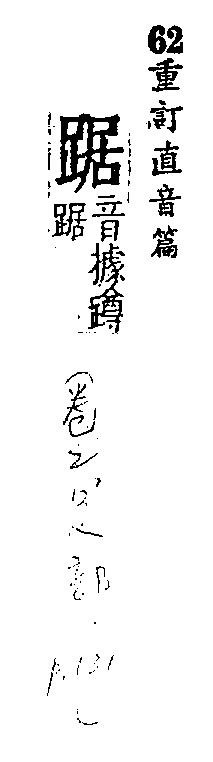 62重訂直音篇
踞
音據蹲
踞
(卷
部.
p.131